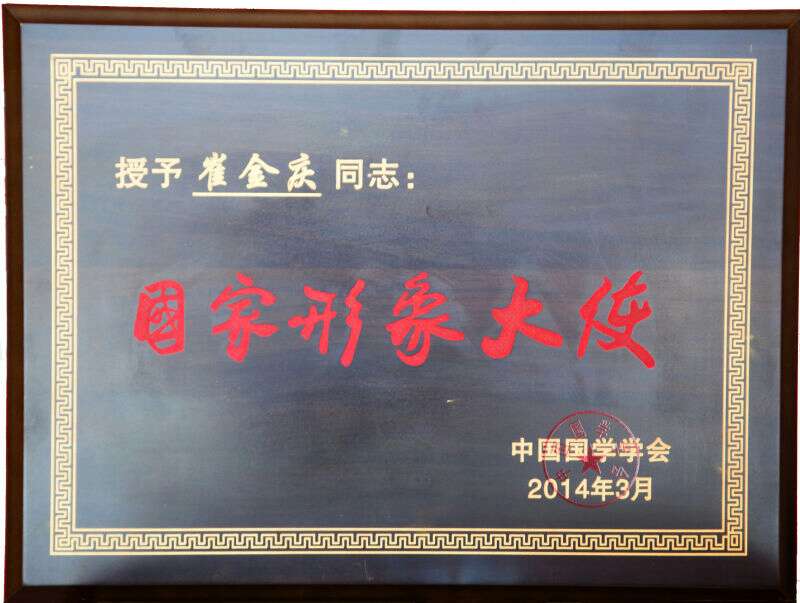 授予 崔金庆 同志：
國家形象大使
中国国学学会
2014年3月